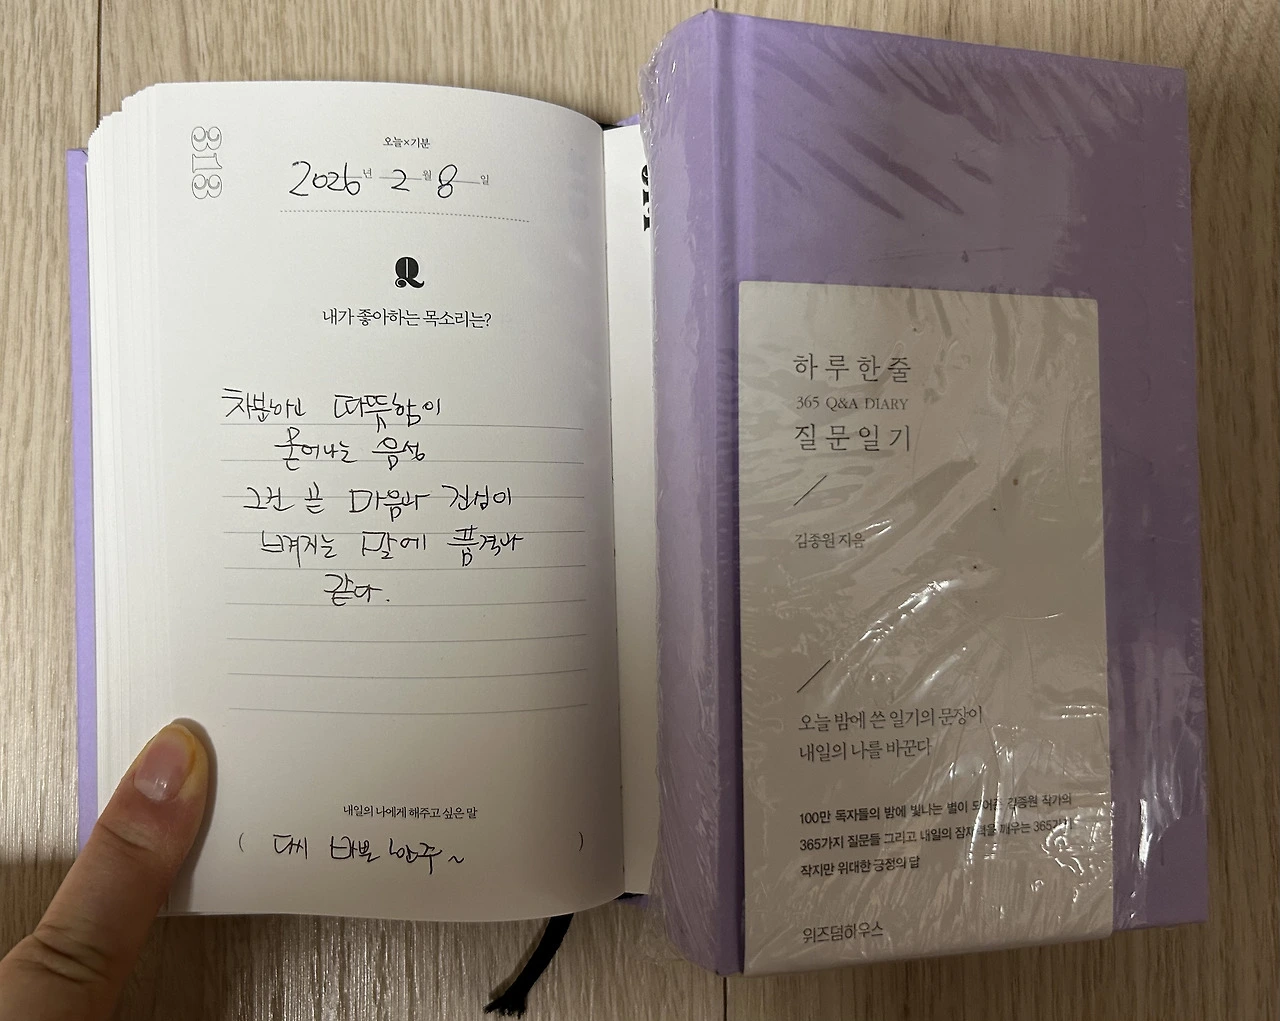 313
오늘×기분
2026년 2월 8일
Q
내가 좋아하는 목소리는?
차분하고 따뜻함이
묻어나는 음성
그건 곧 마음과 진심이
느껴지는 말에 품격과
같다.
내일의 나에게 해주고 싶은 말
( 다시 바쁜 한주~ )
하루 한 줄
365 Q&A DIARY
질문일기
김종원 지음
오늘 밤에 쓴 일기의 문장이
내일의 나를 바꾼다
100만 독자들의 밤에 빛나는 별이 되어준 김종원 작가의
365가지 질문들 그리고 내일의 잠재력을 깨우는 365가지
작지만 위대한 긍정의 답
위즈덤하우스